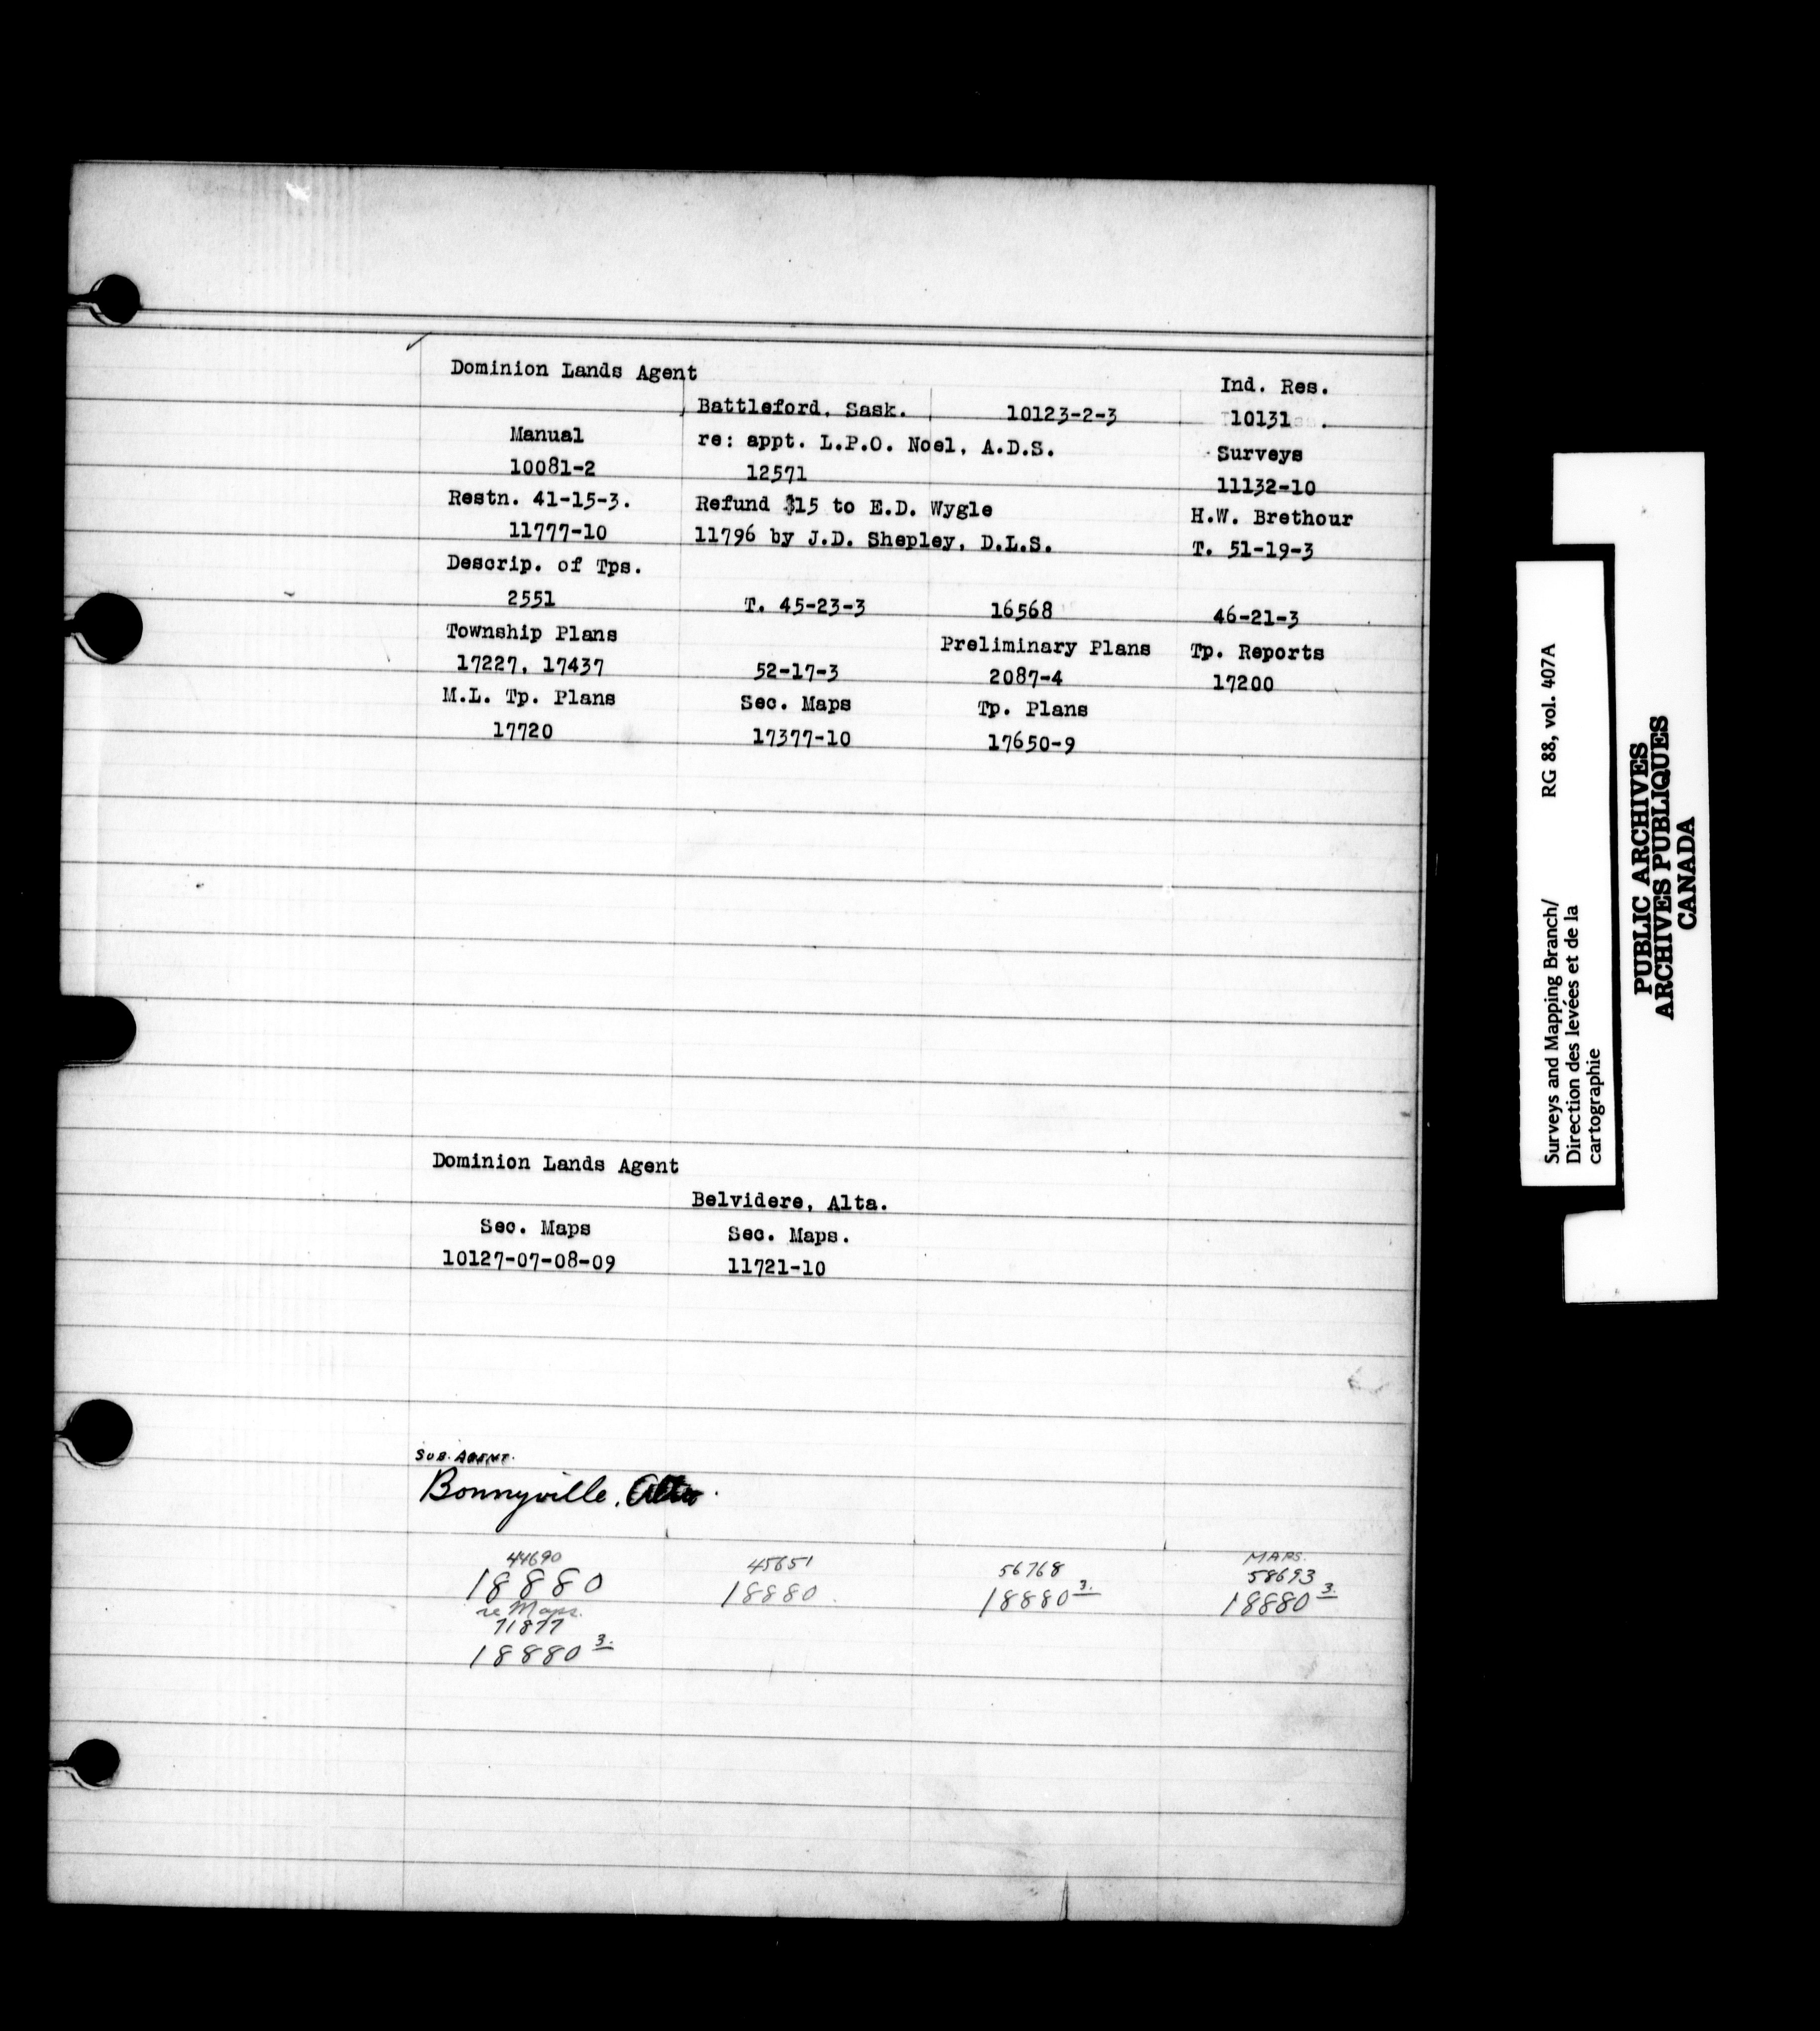 Dominion Lands Agent
Ind. Res.
Battleford, Sask. 10123-2-3 10131
Manual re: appt. L.P.O. Noel, A.D.S. Surveys
10081-2 12571 11132-10
Restn. 41-15-3. Refund $15 to E.D. Wygle H.W. Brethour
11777-10 11796 by J.D. Shepley, D.L.S. T. 51-19-3
Descrip. of Tps.
2551 T. 45-23-3 16568 46-21-3
Township Plans Preliminary Plans Tp. Reports
17227, 17437 52-17-3 2087-4 17200
M.L. Tp. Plans Sec. Maps Tp. Plans
17720 17377-10 17650-9
Dominion Lands Agent
Belvidere, Alta.
Sec. Maps Sec. Maps.
10127-07-08-09 11721-10
SUB. AGENT.
Bonnyville, Alta.
MAPS.
44690 45651 56768 58693
18880 18880 18880 3. 18880 3.
re Maps.
71877
18880 3.
Surveys and Mapping Branch/ RG 88, vol. 407A
Direction des levées et de la
cartographie
PUBLIC ARCHIVES
ARCHIVES PUBLIQUES
CANADA